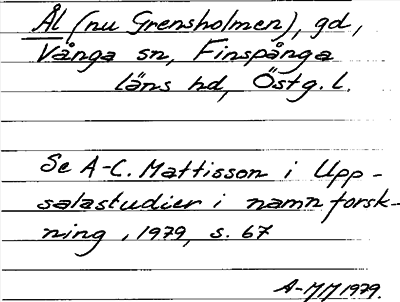 Ål (nu Grensholmen), gd,
Vånga sn, Finspånga
läns hd, Östg. l.
Se A-C. Mattisson i Upp-
salastudier i namnforsk-
ning, 1979, s. 67
A-MM 1979.